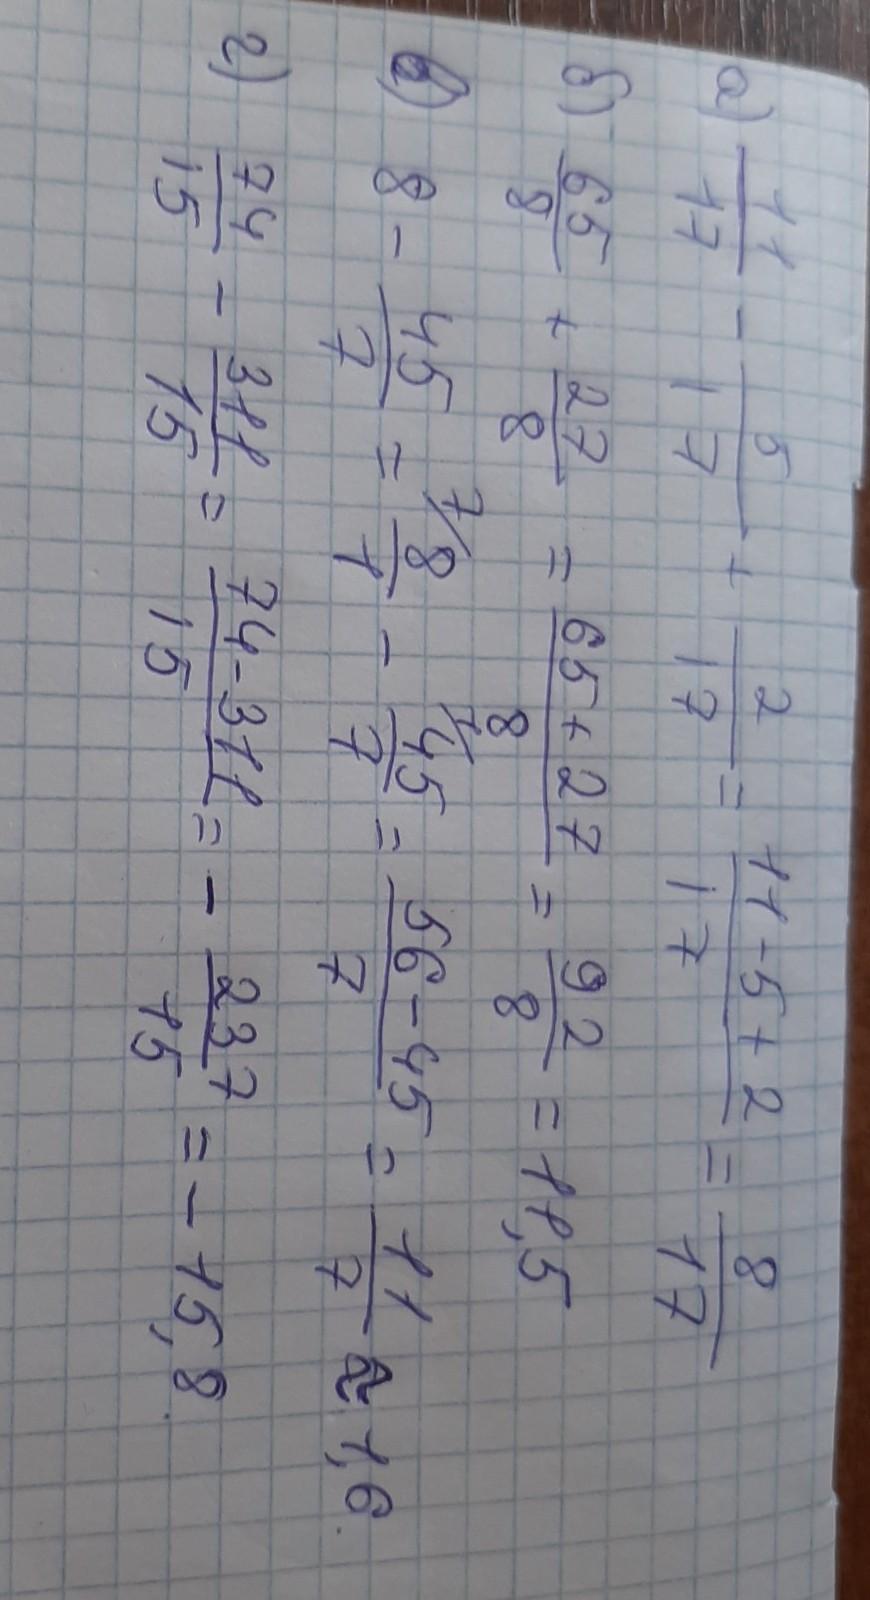 а) 11/17 - 5/17 + 2/17 = (11-5+2)/17 = 8/17
б) 65/8 + 27/8 = (65+27)/8 = 92/8 = 11,5
в) 8 - 45/7 = 7/ 8/1 - 1/ 45/7 = (56-45)/7 = 11/7 ≈ 1,6.
г) 74/15 - 311/15 = (74-311)/15 = - 237/15 = - 15,8.